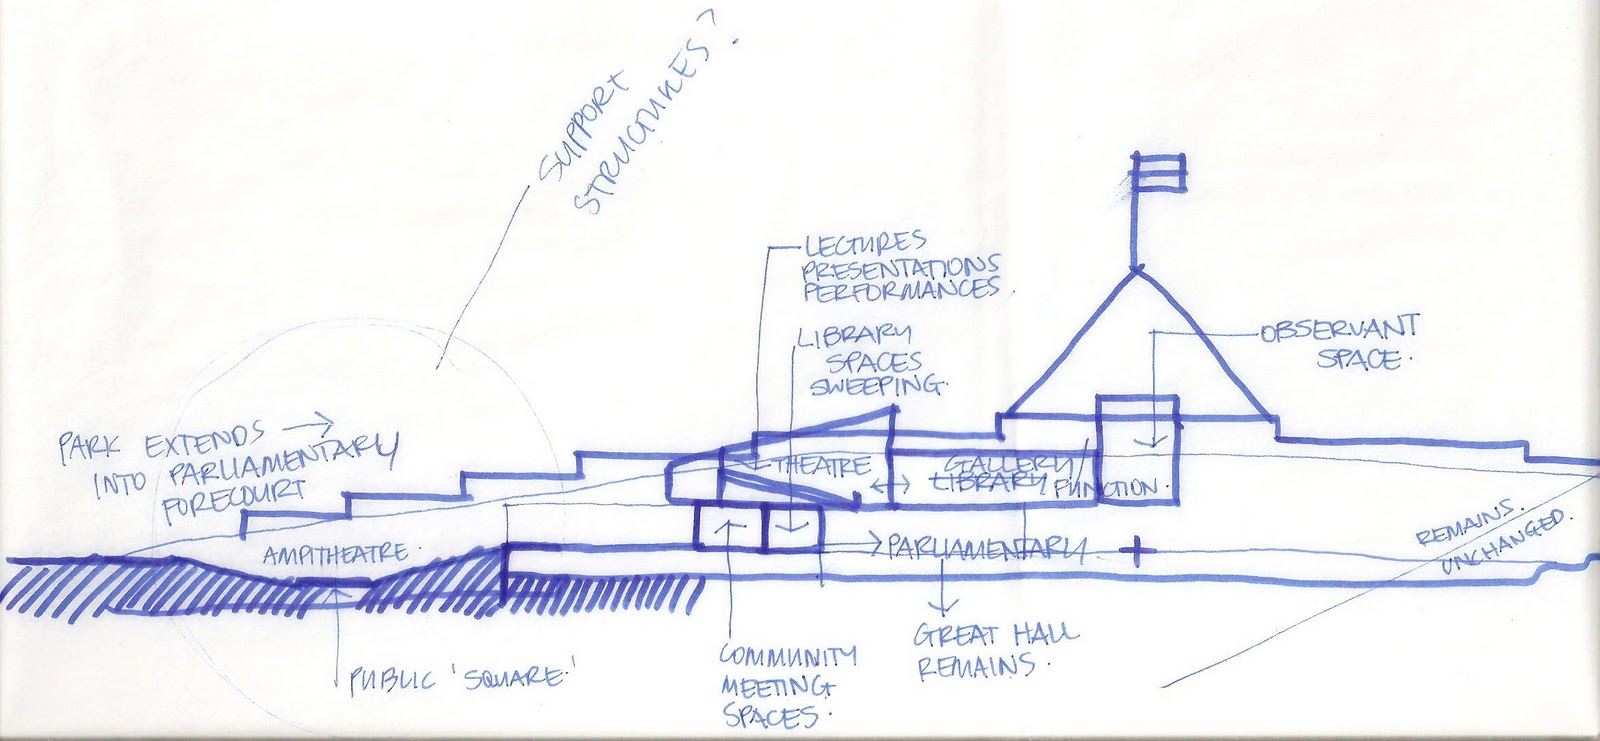 SUPPORT
STRUCTURES?
LECTURES
PRESENTATIONS
PERFORMANCES.
LIBRARY
SPACES
SWEEPING.
OBSERVANT
SPACE.
PARK EXTENDS →
INTO PARLIAMENTARY
FORECOURT
THEATRE
GALLERY/
LIBRARY/FUNCTION.
AMPITHEATRE.
PARLIAMENTARY.
REMAINS.
UNCHANGED.
PUBLIC 'SQUARE.'
COMMUNITY
MEETING
SPACES.
GREAT HALL
REMAINS.